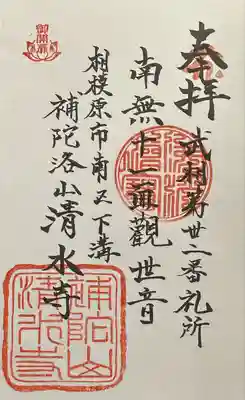 奉拝
武相第卅二番礼所
南無十一面觀世音
相模原市南区下溝
補陀洛山清水寺
補陀山
清水寺